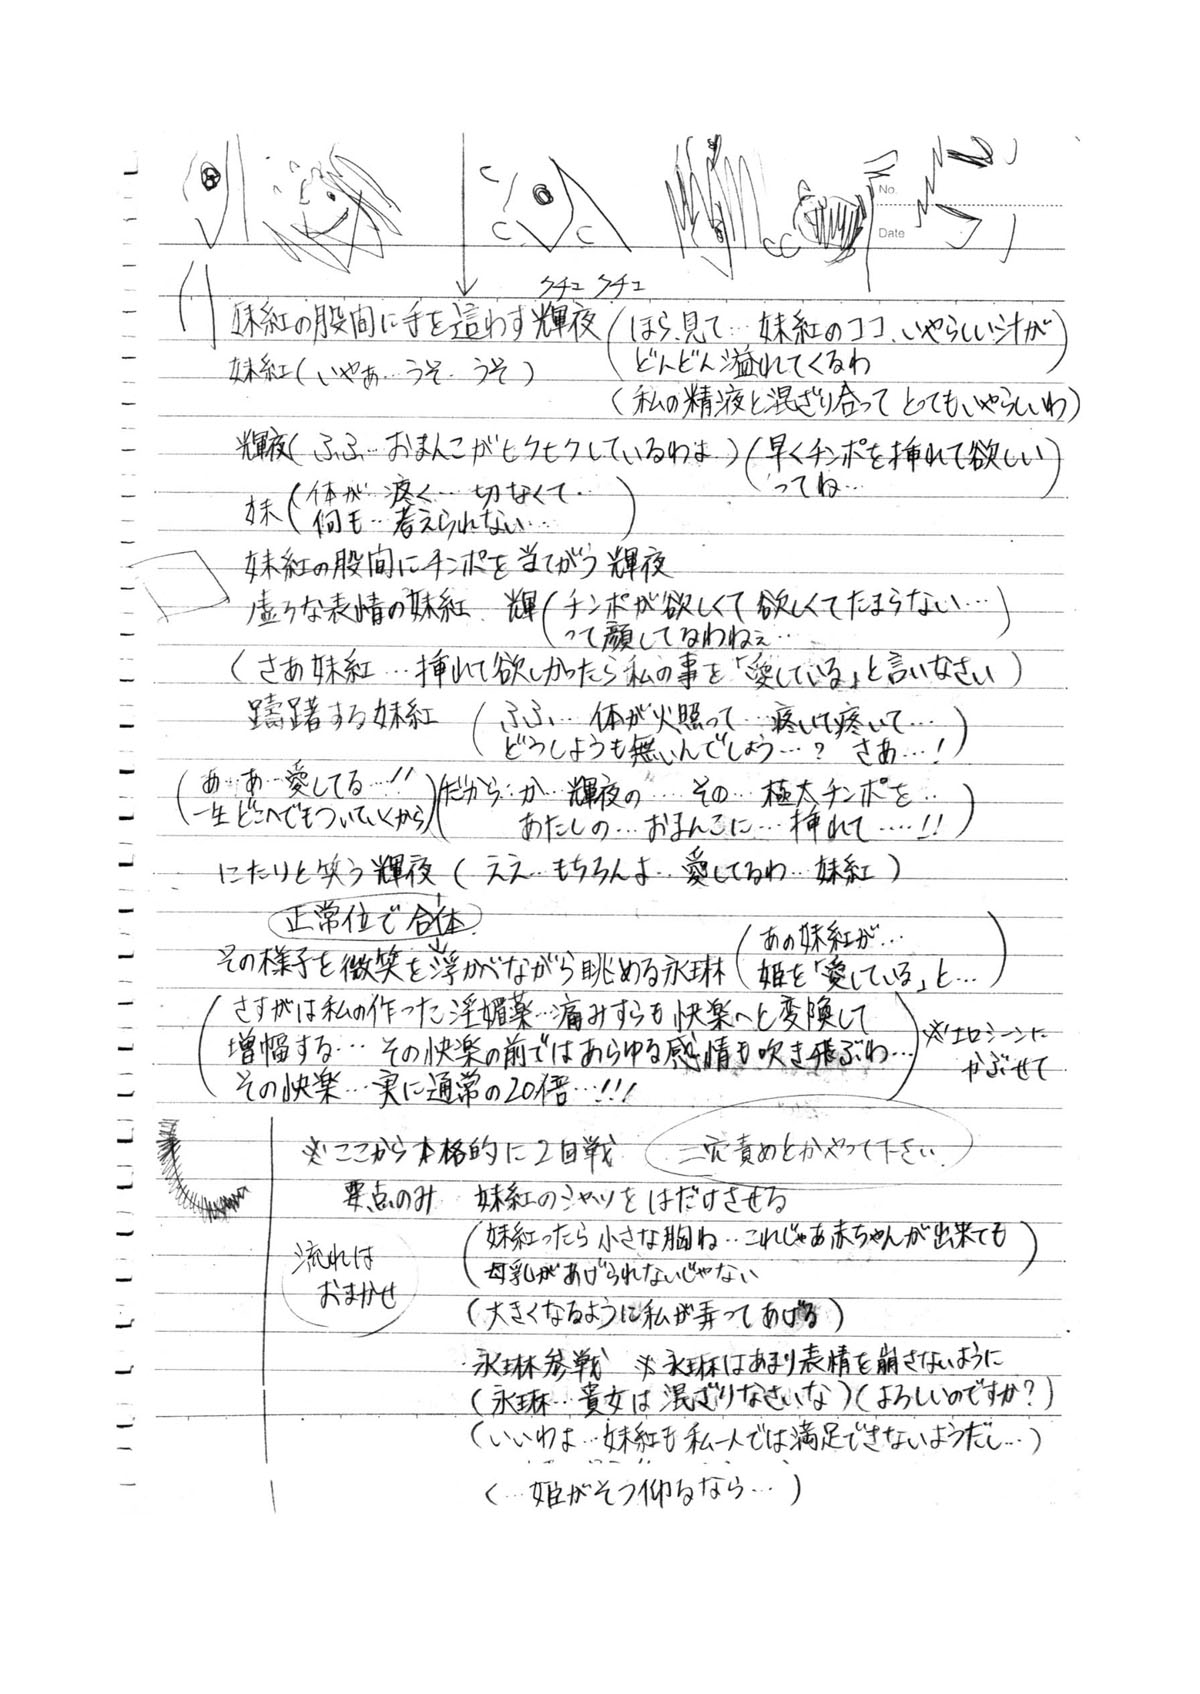 No.
Date
クチュ クチュ
妹紅の股間に手を這わす輝夜 (ほら、見て…妹紅のココ、いやらしい汁が
どんどん溢れてくるわ)
妹紅(いやぁ…うそ…うそ)
(私の精液と混ざり合って とってもいやらしいわ)
輝夜(ふふ…おまんこがヒクヒクしているわよ)(早くチンポを挿れて欲しい
ってね…)
妹(体が 疼く… 切なくて…
何も…考えられない…)
妹紅の股間にチンポを当てがう輝夜
虚ろな表情の妹紅 輝(チンポが欲しくて欲しくてたまらない…
って顔してるわねぇ…)
(さあ妹紅…挿れて欲しかったら私の事を「愛している」と言いなさい)
躊躇する妹紅 (ふふ… 体が火照って…疼いて疼いて…
どうしようも無いんでしょう…? さあ…!)
(あ…あ…愛してる…!!
一生どこへでもついていくから)(だから…か…輝夜の…その…極太チンポを…
あたしの…おまんこに…挿れて…!!)
にたりと笑う輝夜 (ええ…もちろんよ…愛してるわ…妹紅)
正常位で合体
その様子を微笑を浮かべながら眺める永琳 (あの妹紅が…
姫を「愛している」と…)
(さすがは私の作った淫媚薬…痛みすらも快楽へと変換して
増幅する… その快楽の前ではあらゆる感情も吹き飛ぶわ…
その快楽…実に通常の20倍…!!!)
※エロシーンに
かぶせて
※ここから本格的に2回戦 二穴責めとかやって下さい。
要点のみ 妹紅のシャツをはだけさせる
流れは
おまかせ
(妹紅ったら小さな胸ね…これじゃあ赤ちゃんが出来ても
母乳があげられないじゃない)
(大きくなるように私が弄ってあげる)
・永琳参戦 ※永琳はあまり表情を崩さないように
(永琳…貴女は混ざりなさいな)(よろしいのですか?)
(いいわよ…妹紅も私一人では満足できないようだし…)
(…姫がそう仰るなら…)